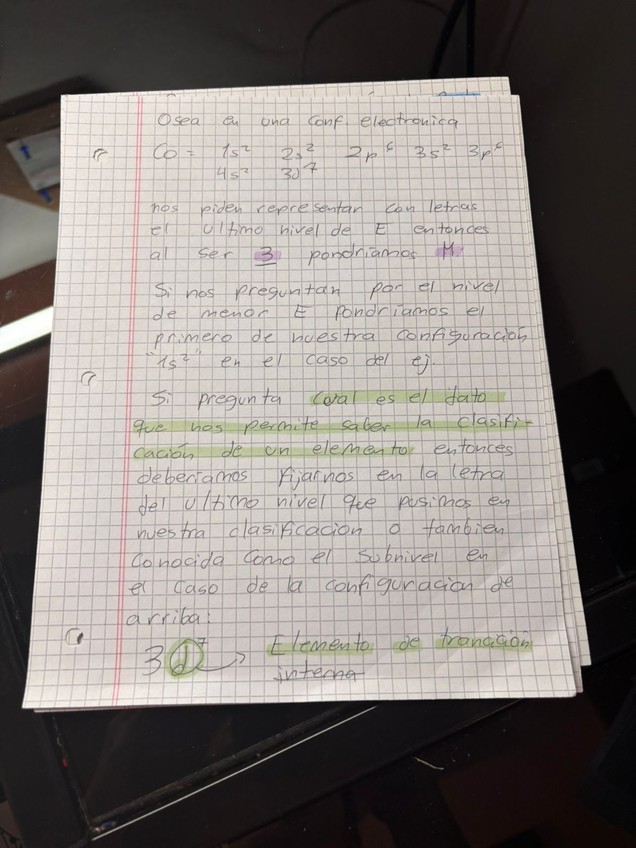 Osea en una conf. electronica
Co = 1s² 2s² 2p⁶ 3s² 3p⁶
4s² 3d⁷
nos piden representar con letras
el ultimo nivel de E entonces
al ser 3 pondriamos M
Si nos preguntan por el nivel
de menor E pondríamos el
primero de nuestra configuración
"1s²" en el caso del ej.
Si pregunta cual es el dato
que nos permite saber la clasifi-
cación de un elemento entonces
deberiamos fijarnos en la letra
del ultimo nivel que pusimos en
nuestra clasificacion o tambien
conocida como el subnivel en
el caso de la configuracion de
arriba:
3d⁷ → Elemento de tranación
interna